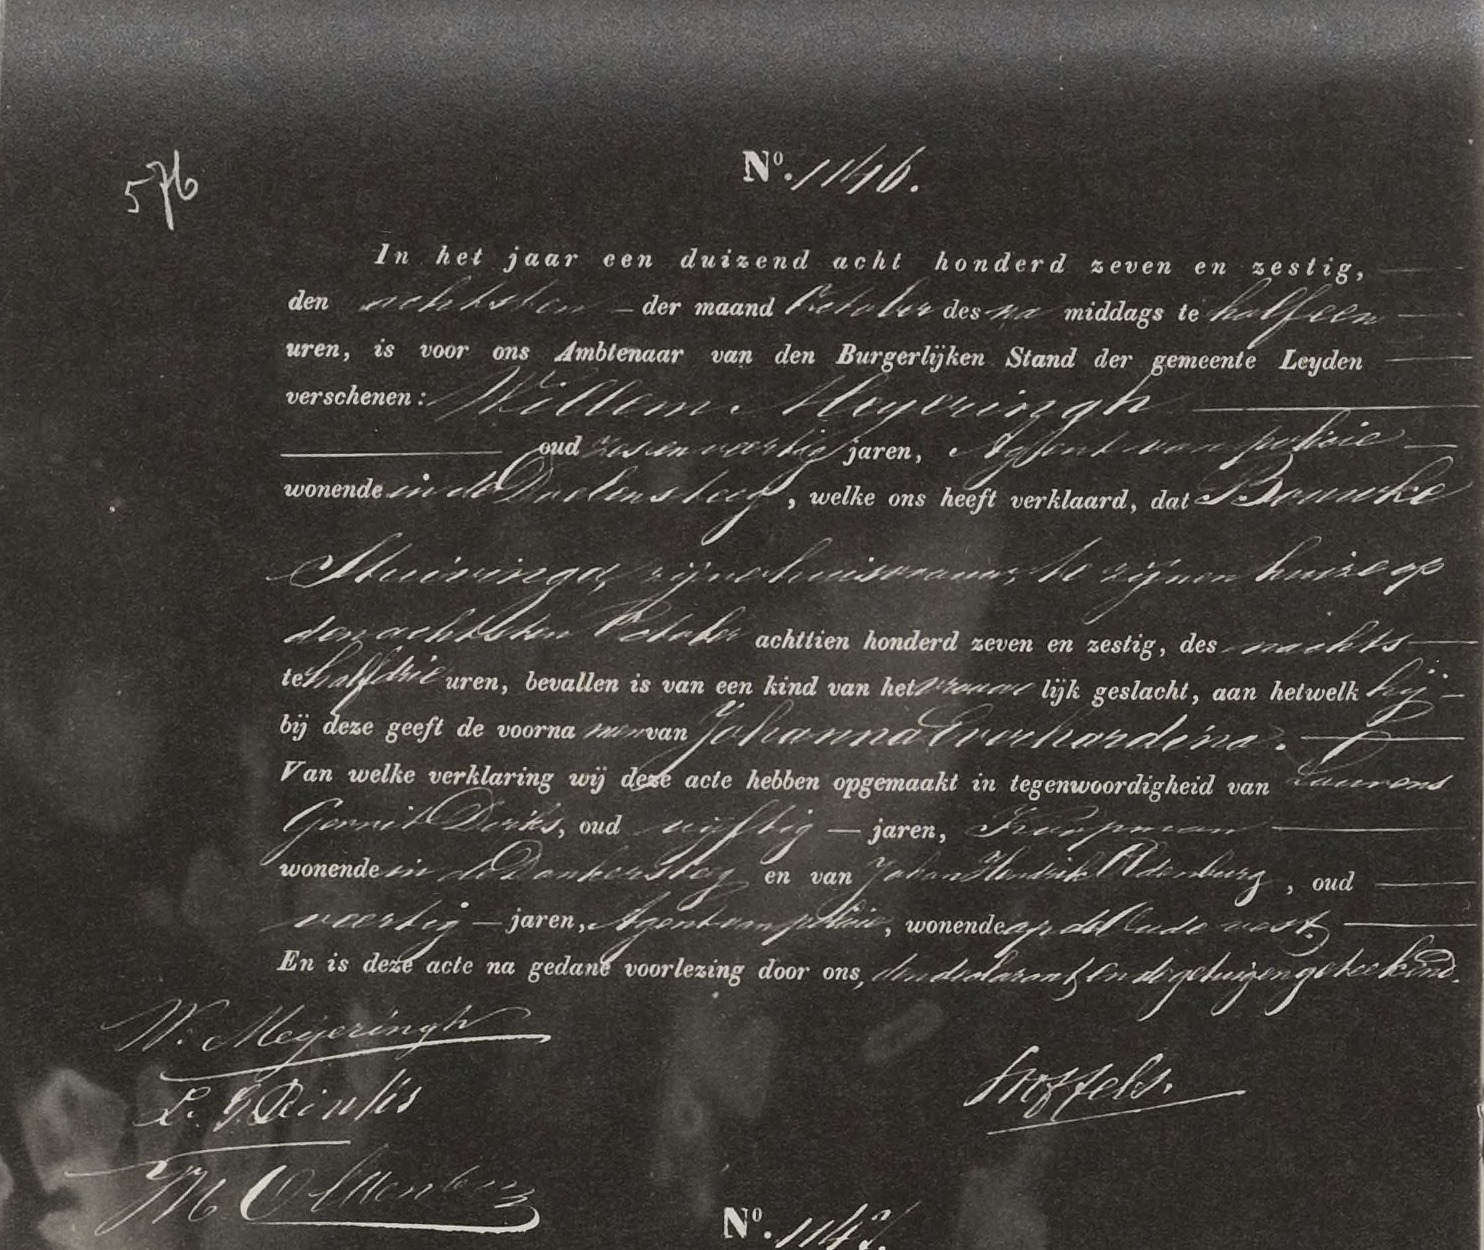 576
Nº. 1146.
In het jaar een duizend acht honderd zeven en zestig,
den achtsten der maand October des na middags te half een
uren, is voor ons Ambtenaar van den Burgerlijken Stand der gemeente Leyden
verschenen: Willem Meyeringh
oud zes en veertig jaren, Agent van politie
wonende in de Doelensteeg, welke ons heeft verklaard, dat Bouwke
Stuivinga, zijne huisvrouw, te zijnen huize op
den achtsten October achttien honderd zeven en zestig, des nachts
te half drie uren, bevallen is van een kind van het vrouwe lijk geslacht, aan hetwelk hij
bij deze geeft de voorna men van Johanna Everhardina.
Van welke verklaring wij deze acte hebben opgemaakt in tegenwoordigheid van Laurens
Gerrit, oud vijftig jaren,
wonende in de Donkersteeg en van Johan Hendrik Oldenburg, oud
veertig jaren, Agent van politie, wonende op de Oude vest.
En is deze acte na gedane voorlezing door ons, den declarant en de getuigen geteekend.
W. Meijeringh
Stoffels.
L. G.
Nº. 1147.